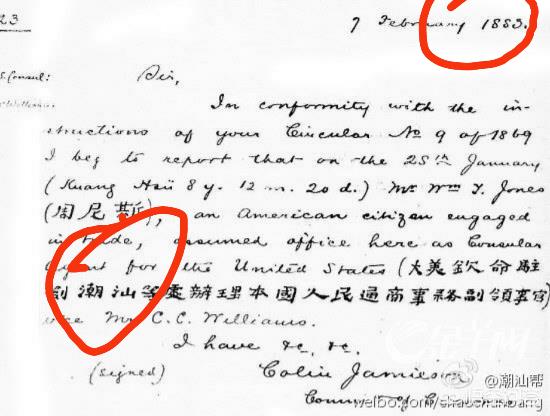 23
7 February 1883.
S. Consul:
Sir,
In conformity with the in-
structions of your Circular No 9 of 1869
I beg to report that on the 28th January
(Kuang Hsü 8 y. 12 m. 20 d.) Mr Wm Y. Jones
(周尼斯), an American citizen engaged
in trade, assumed office here as Consular
Agent for the United States (大美欽命駐
劄潮汕等處辦理本國人民通商事務副領事官
vice Mr C. C. Williams.
I have &c, &c.
(signed) Colin Jamieson
Commr of Customs
@潮汕帮
weibo.com/chaoshanbang